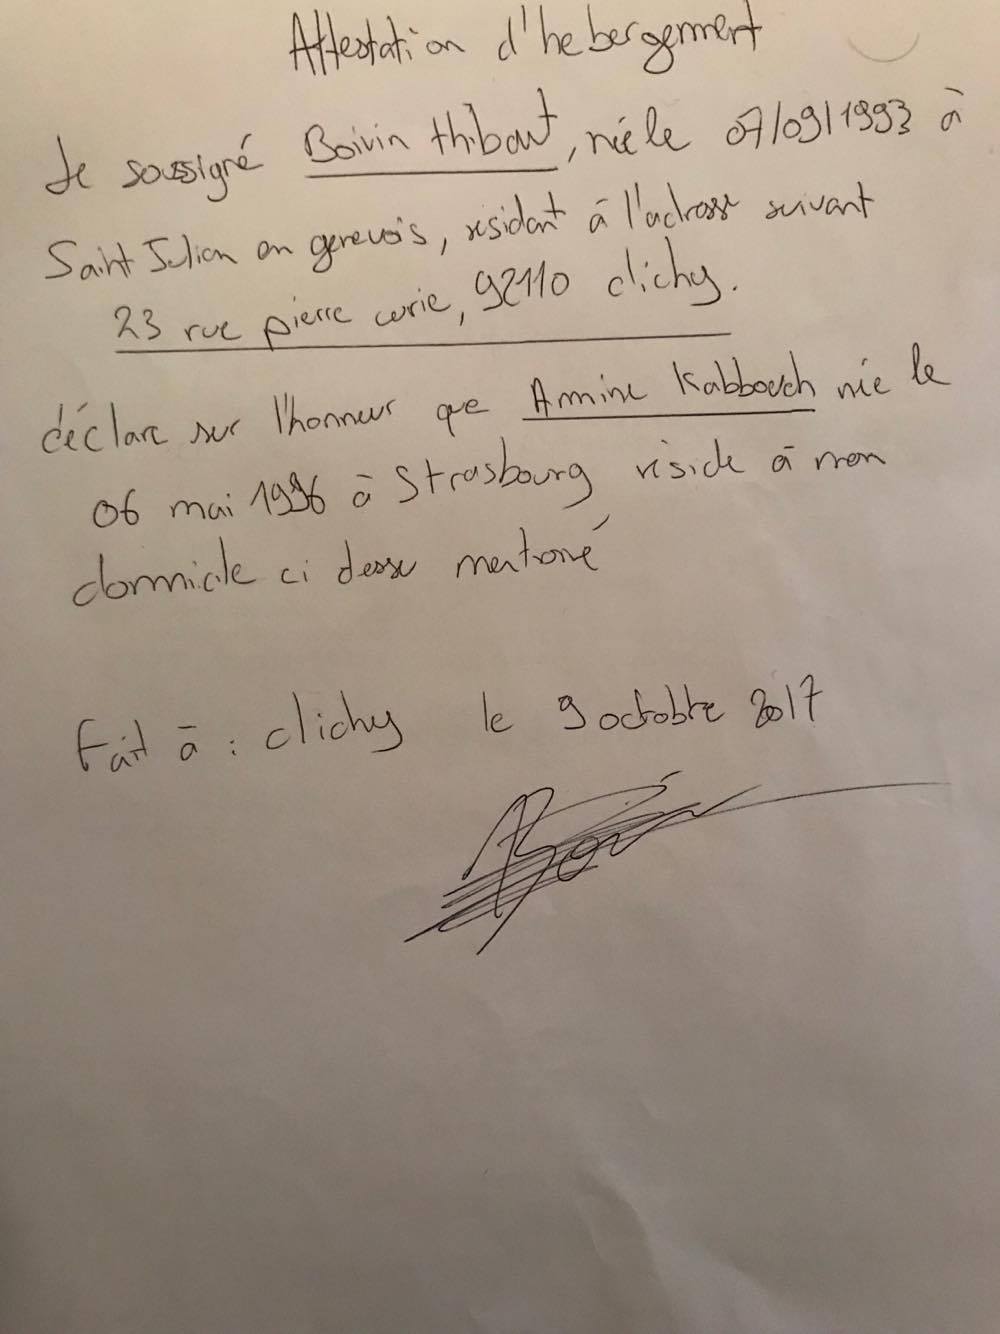 Attestation d'hebergement
Je soussigné Boivin thibaut, née le 07/09/1993 à
Saint Julien en genevois, résidant à l'adresse suivant
23 rue pierre curie, 92110 clichy.
déclare sur l'honneur que Amine Kabbouch née le
06 mai 1996 à Strasbourg réside à mon
domicile ci dessu mentioné
Fait à : clichy le 9 octobre 2017